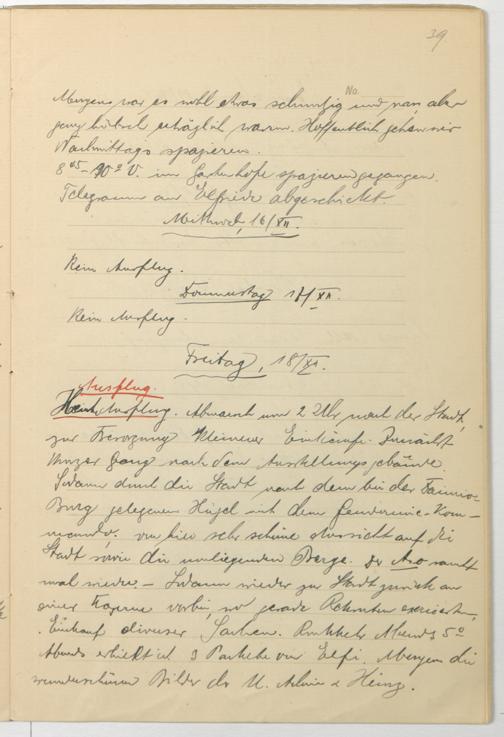 39
No.
Morgens war es wohl etwas schmutzig und nass, aber
ganz hübsch erträglich warm. Hoffentlich gehen wir
Nachmittags spazieren.
8 45 - 10 20 V. im Gartenhofe spazierengegangen.
Telegramm an Elfriede abgeschickt.
Mittwoch, 16/XII.
Kein Ausflug.
Donnerstag 17/XII.
Kein Ausflug.
Freitag, 18/XII.
Ausflug.
Ausflug. Abmarsch um 2 Uhr nach der Stadt,
zur Besorgung kleinerer Einkäufe. Zunächst
kurzer Gang nach dem Ausstellungsgebäude.
Sodann durch die Stadt nach dem bei der
Burg gelegenen Hügel mit dem Gendarmerie-Kom-
mando. von hier sehr schöne Aussicht auf die
Stadt sowie die umliegenden Berge. Der Aso raucht
mal wieder. - Sodann wieder zur Stadt zurück an
einer Kaserne vorbei, wo gerade Rekruten exerzierten,
Einkauf diverser Sachen. Rückkehr Abends 5
Abends erhielt ich 3 Packete von Elfi. Morgen die
wunderschönen Bilder der M. & Heinz.